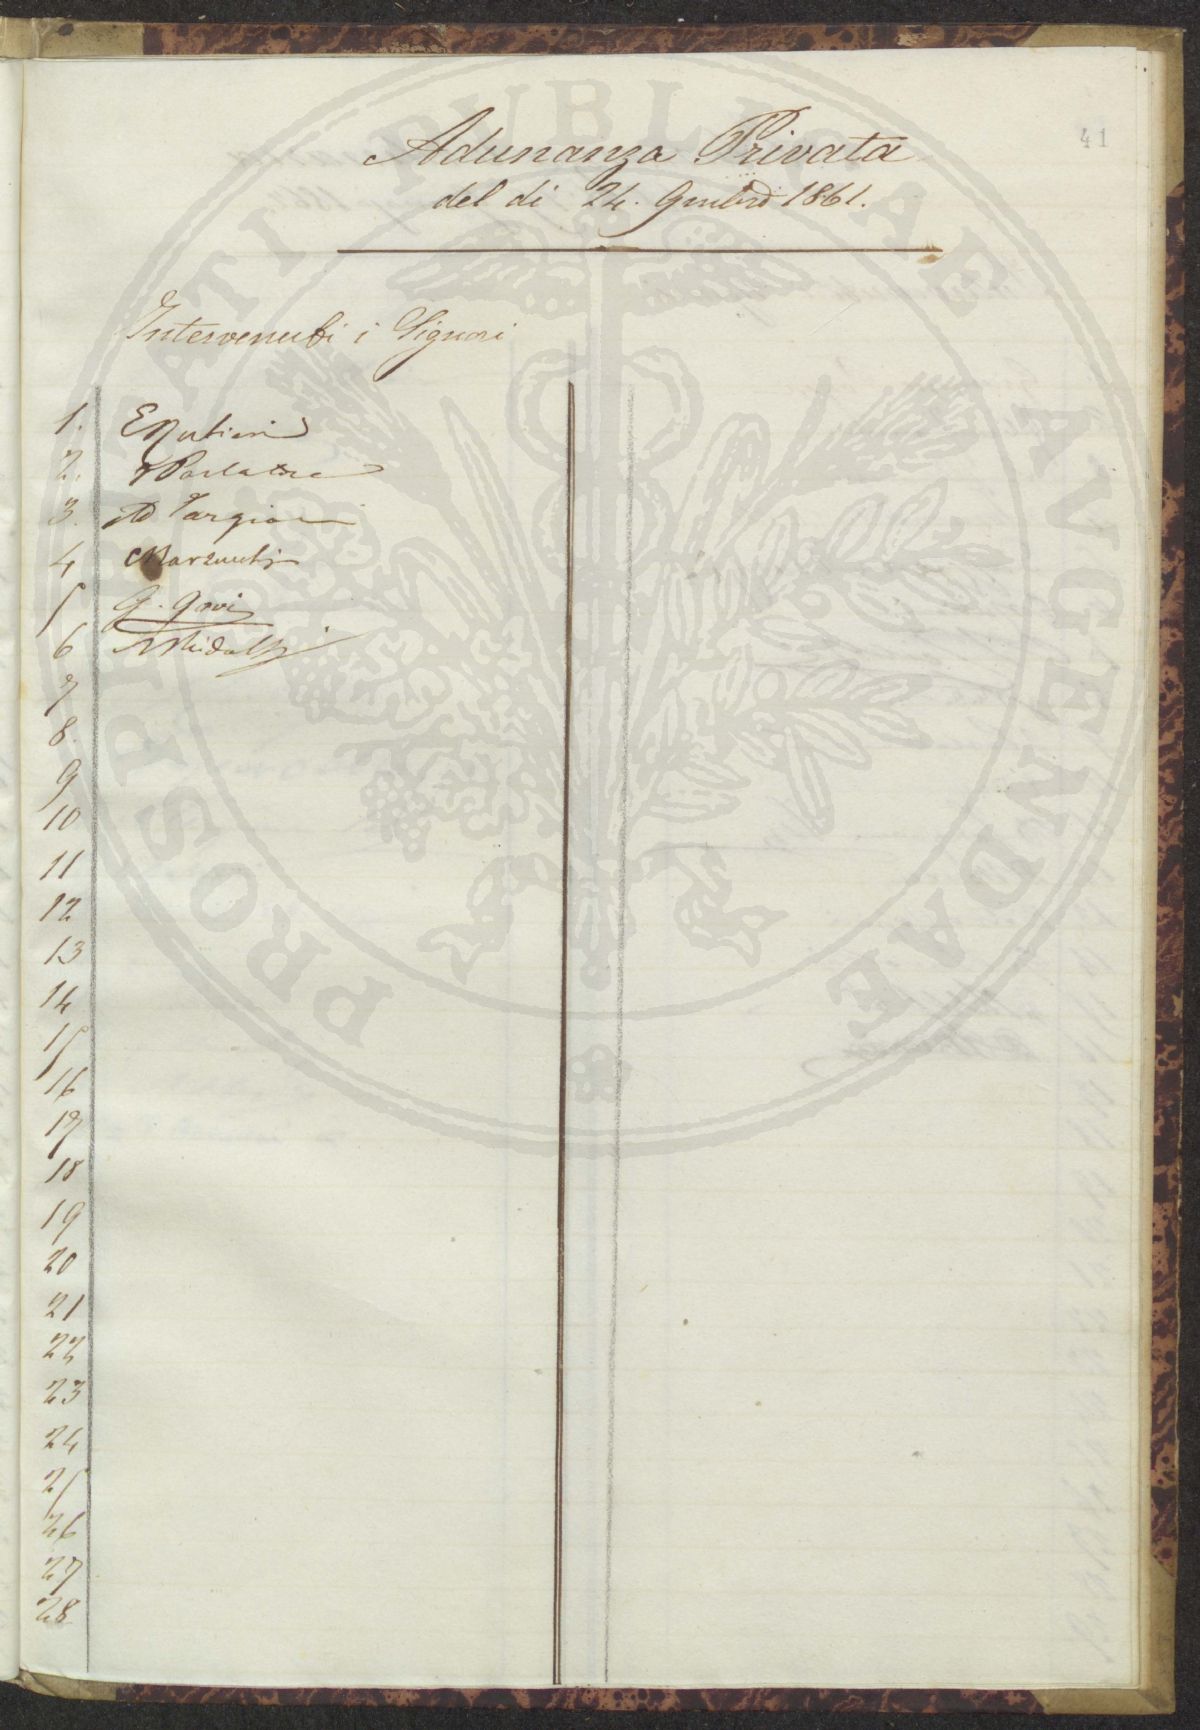 41
Adunanza Privata
del dì 24. 9mbre 1861.
Intervenuti i Signori
1. E Rubieri
2. F Parlatore
3. Ad Targioni
4 Marzucchi
5 G. Govi
6 C Ridolfi
7
8.
9
10
11
12
13
14
15
16
17
18
19
20
21
22
23
24
25
26
27
28
PROSPERITATI PUBLICAE AVGENDAE